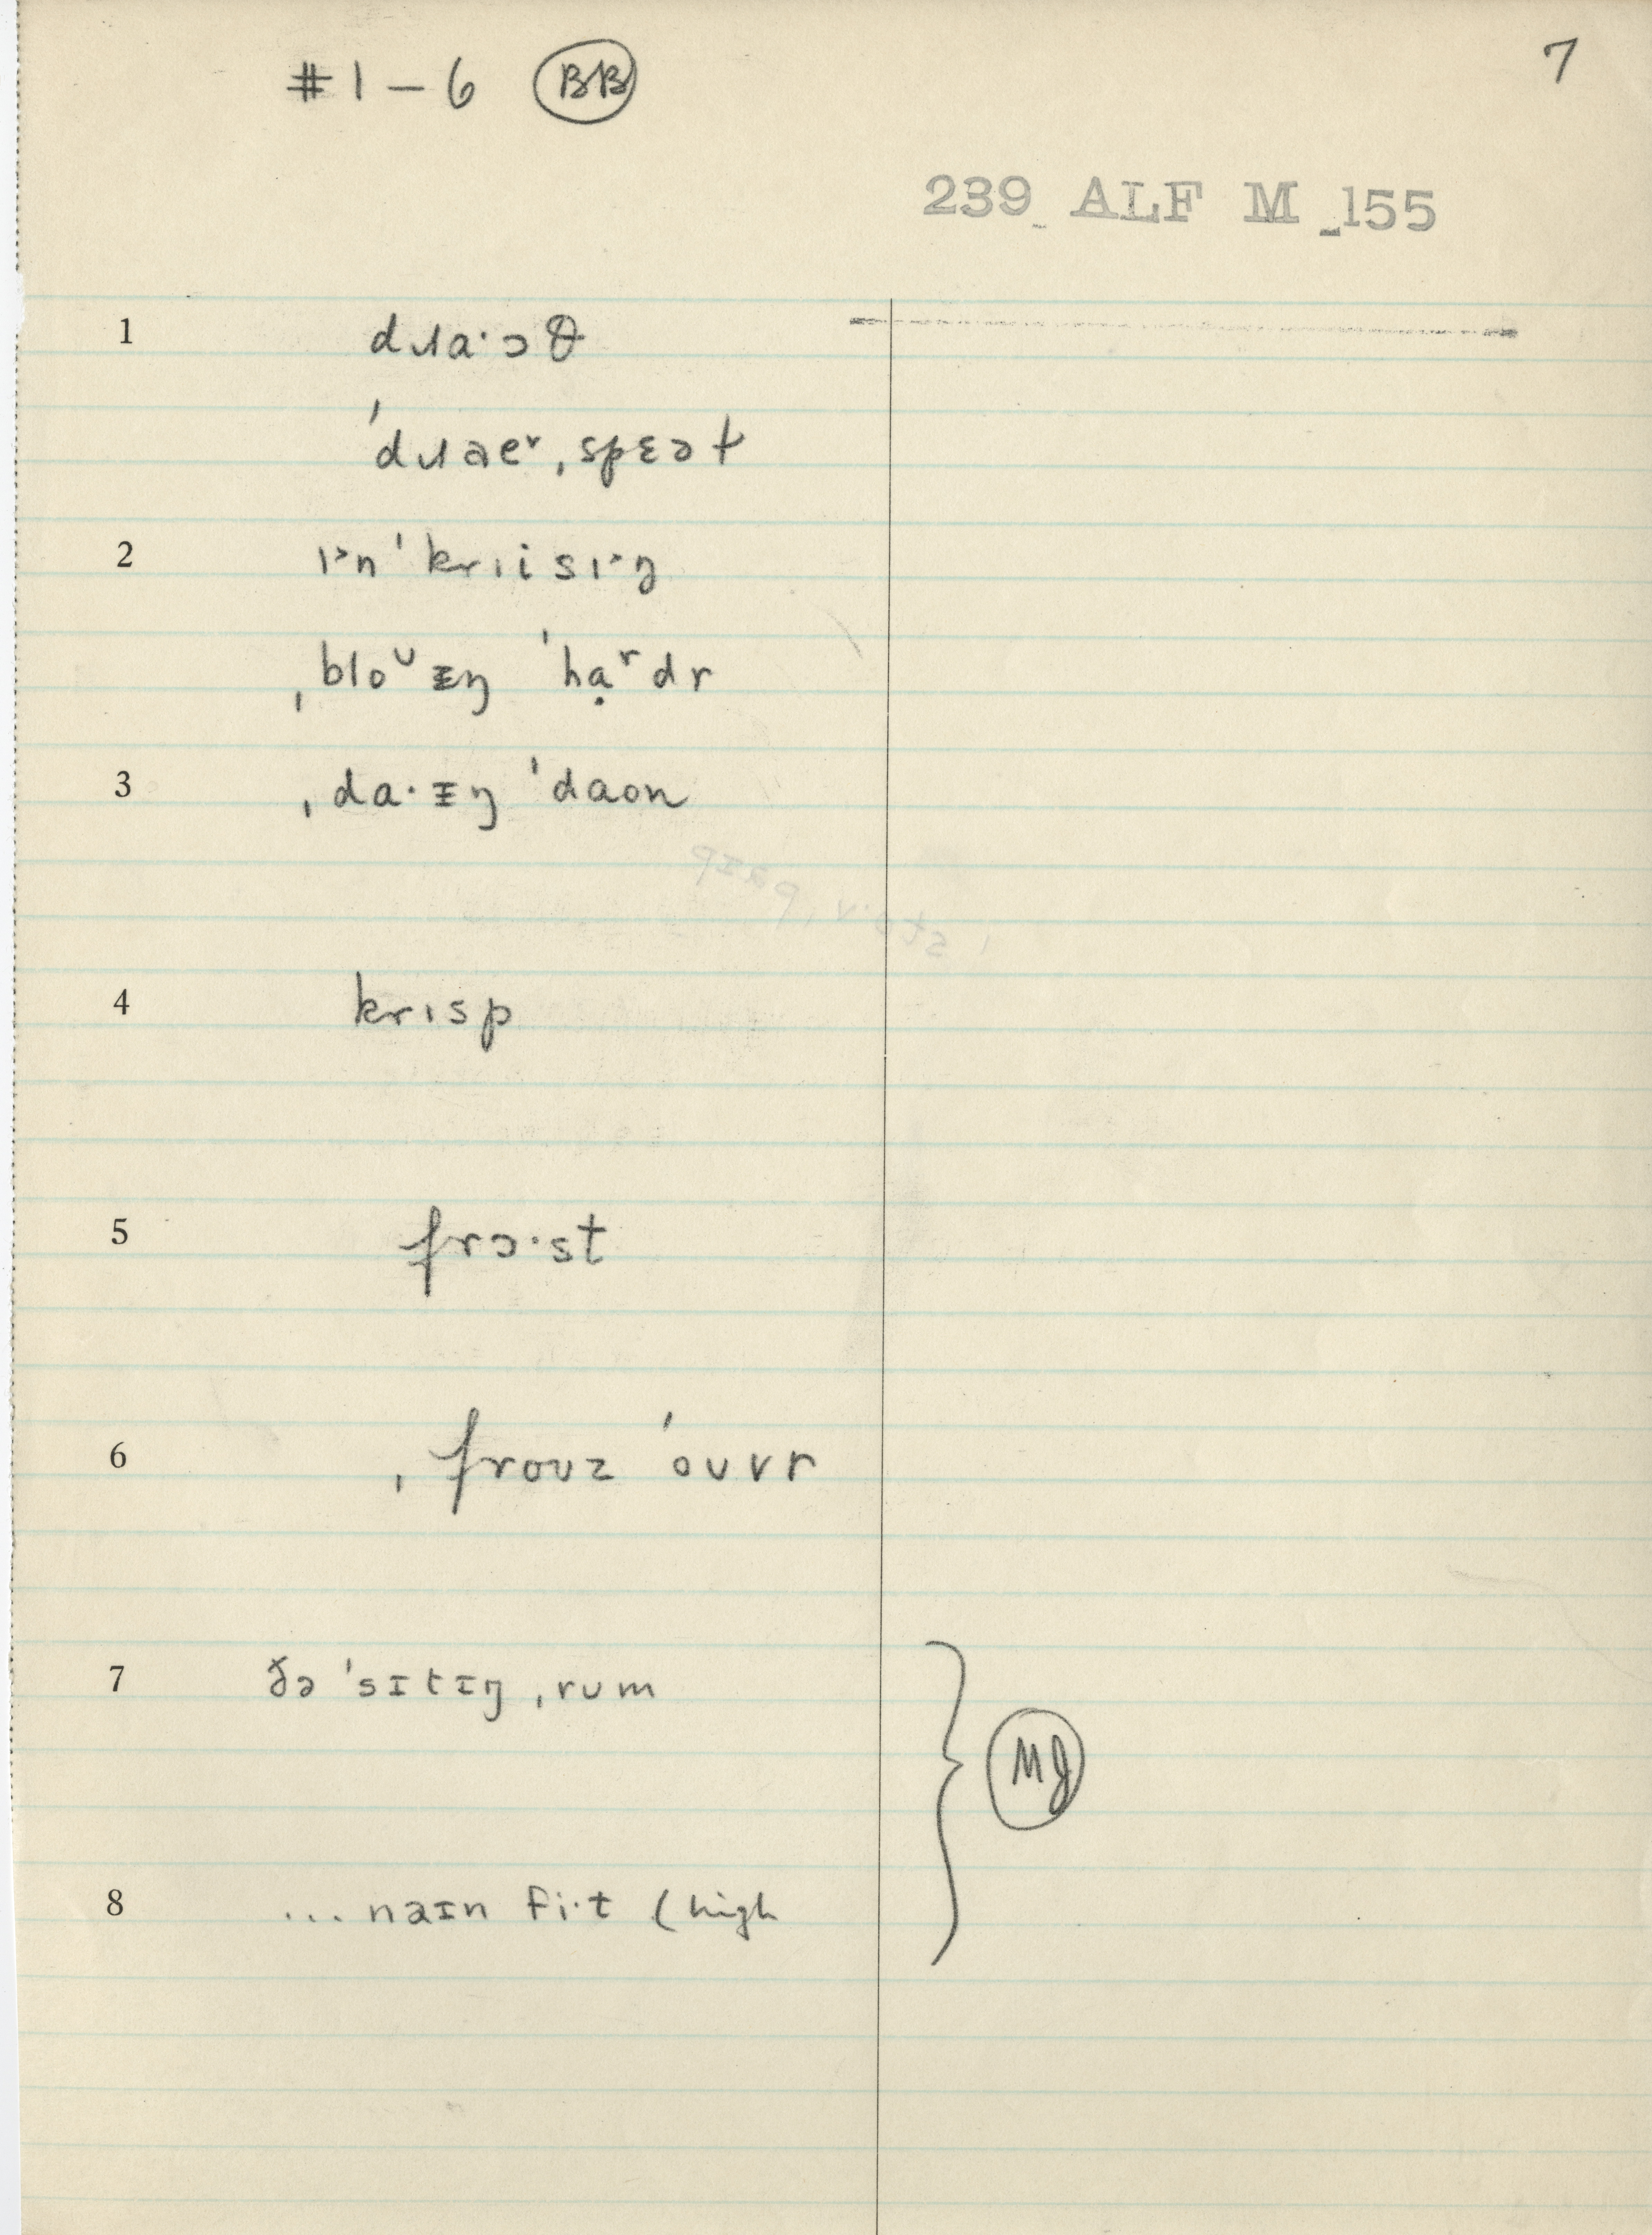 #1–6 BB
7
239 ALF M 155
1 dɹa·ɔθ
ˈdɹaeʳˌspɛət
2 ɪ˃nˈkrɪisɪ˃ŋ
ˌbloᶷᵻŋ ˈhạʳdr
3 ˌda·ᵻŋ ˈdaon
4 krɪsp
5 frɔ·st
6 ˌfroʊz ˈoʊvr
7 ðə ˈsɪtɪŋˌrʊm
MJ
8 ... naɪn fi·t (high